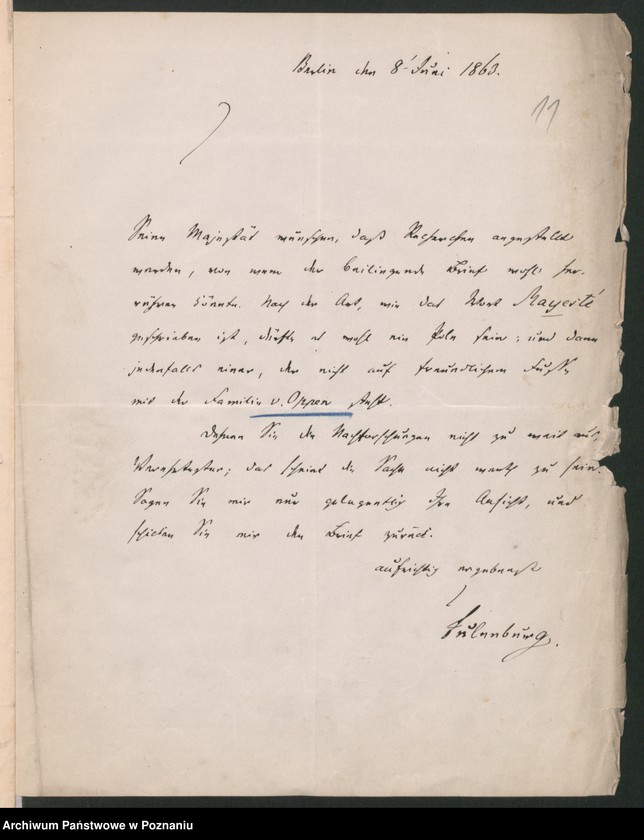 Berlin den 8' Juni 1863.
11
Seine Majestät wünschen, daß Recherchen angestellt
werden, von wem der beiliegende Brief wohl her-
rühren könnte. Nach der Art, wie das Wort Mayesté
geschrieben ist, dürfte es wohl ein Pole sein; und dann
jedenfalls einer, der nicht auf freundlichem Fuße
mit der Familie v. Oppen steht.
Dehnen Sie die Nachforschungen nicht zu weit aus,
Verehrtester; das scheint die Sache nicht werth zu sein.
Sagen Sie mir nur gelegentlich Ihre Ansicht, und
schicken Sie mir den Brief zurück.
aufrichtig ergebenst
Eulenburg.
Archiwum Państwowe w Poznaniu